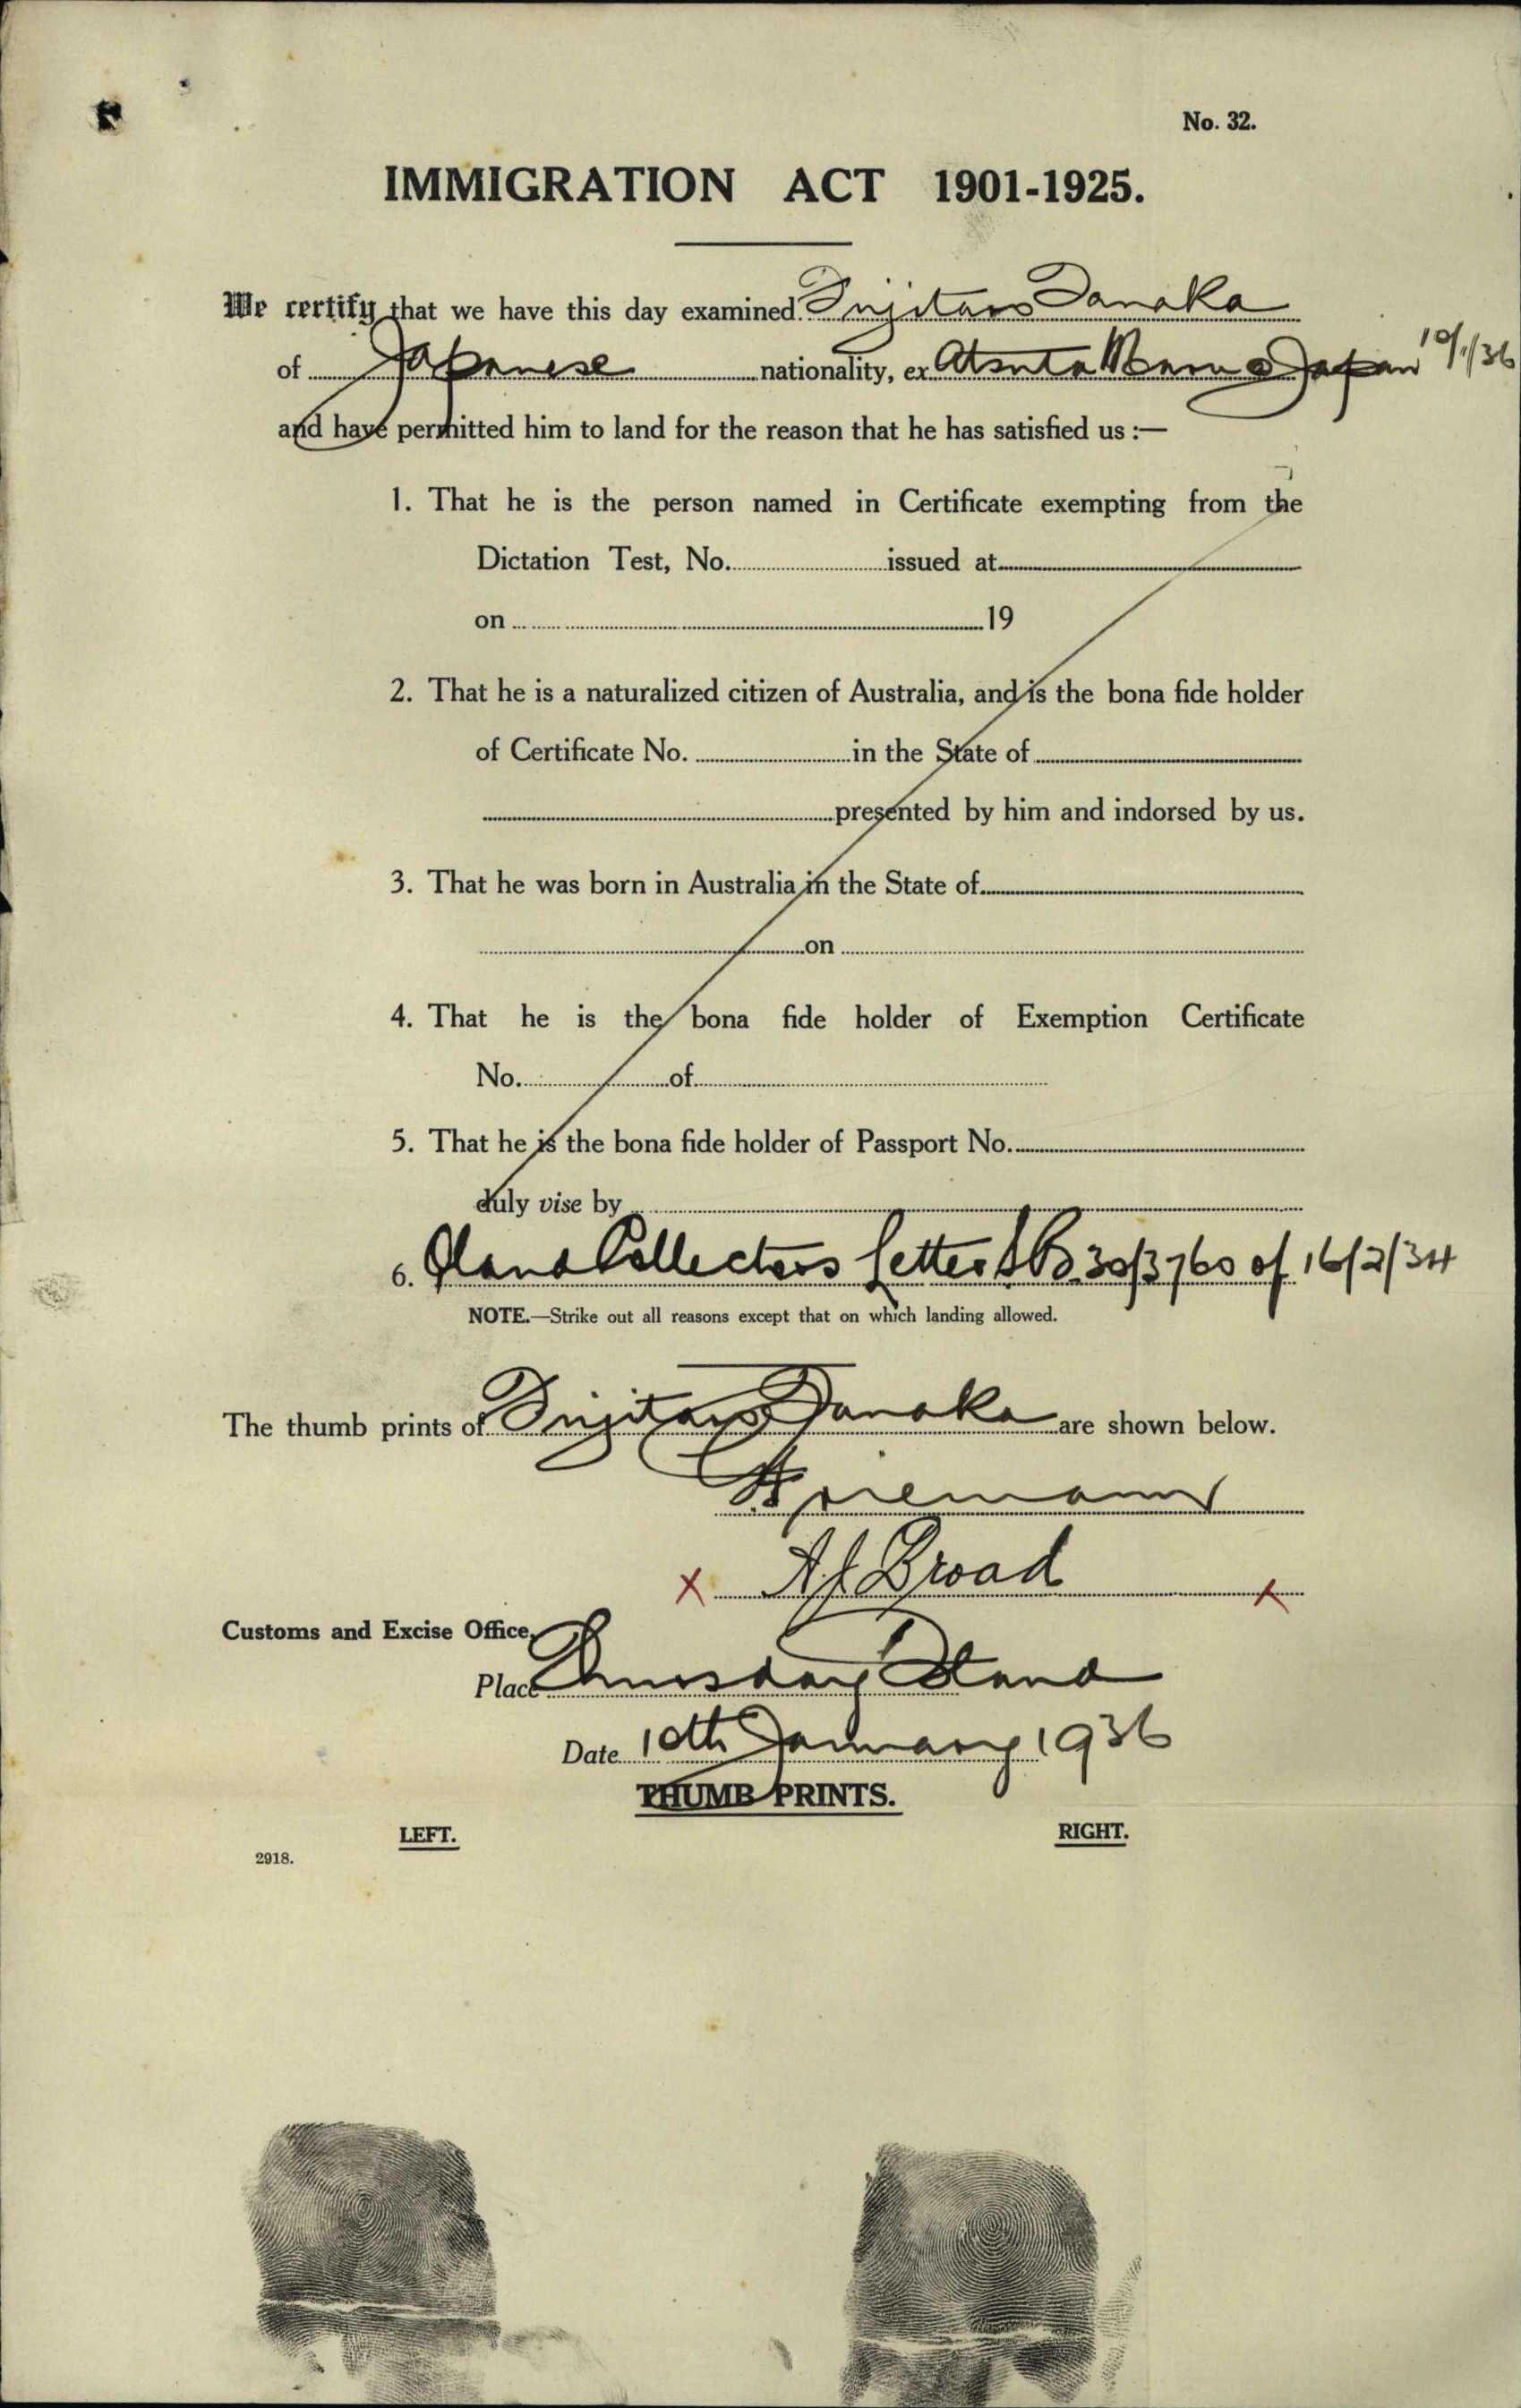 No. 32.
IMMIGRATION ACT 1901-1925.
We certify that we have this day examined Fujitaro Tanaka
of Japanese nationality, ex Atsuta Maru Japan 10/1/36
and have permitted him to land for the reason that he has satisfied us :—
1. That he is the person named in Certificate exempting from the
Dictation Test, No. issued at
on 19
2. That he is a naturalized citizen of Australia, and is the bona fide holder
of Certificate No. in the State of
presented by him and indorsed by us.
3. That he was born in Australia in the State of
on
4. That he is the bona fide holder of Exemption Certificate
No. of
5. That he is the bona fide holder of Passport No.
duly vise by
6. Collectors Letter 30/3760 of 16/2/34
NOTE.—Strike out all reasons except that on which landing allowed.
The thumb prints of Fujitaro Tanaka are shown below.
x Broad x
Customs and Excise Office,
Place Thursday Island
Date 10th January 1936
THUMB PRINTS.
LEFT. RIGHT.
2918.